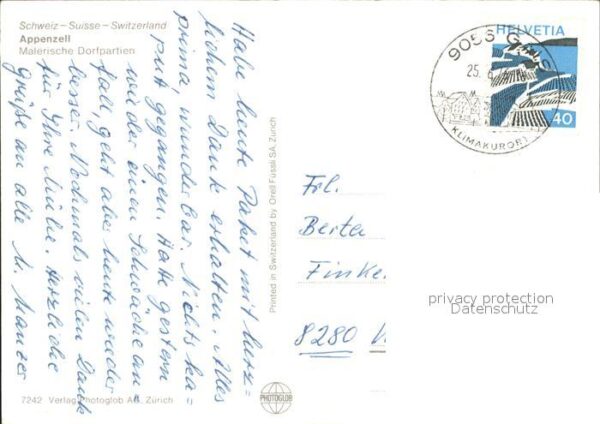 Schweiz – Suisse – Switzerland
Appenzell
Malerische Dorfpartien
Habe heute Paket mit herz=
lichem Dank erhalten. Alles
prima, wunderbar. Nichts ka=
put gegangen. Hatte gestern
wieder einen Schwächean=
fall, geht aber heute wieder
besser. Nochmals vielen Dank
für Ihre Mühe. Herzliche
Grüße an alle
7242 Verlag Photoglob AG, Zürich
Printed in Switzerland by Orell Füssli SA, Zürich
PHOTOGLOB
HELVETIA
40
9056 G
25.
KLIMAKURORT
Frl.
Berta
Finke
8280
privacy protection
Datenschutz